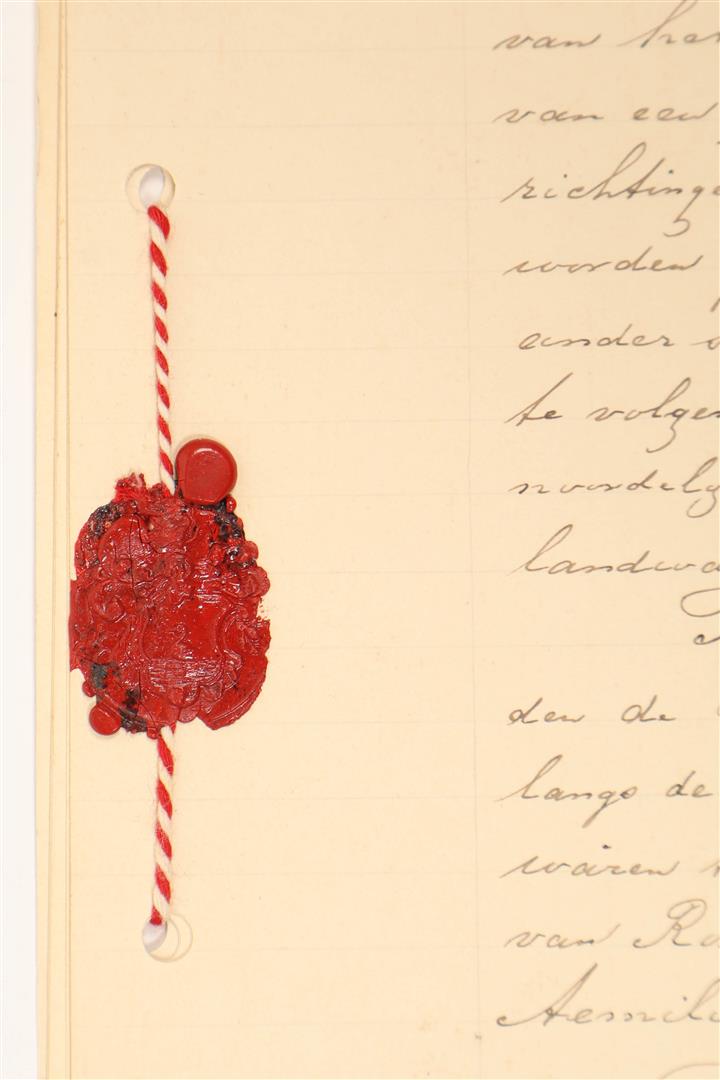 van het
van een
richtinge
worden
ander
te volgen
noordely
landwa
den de
langs de
waren
van Ro
Aemili